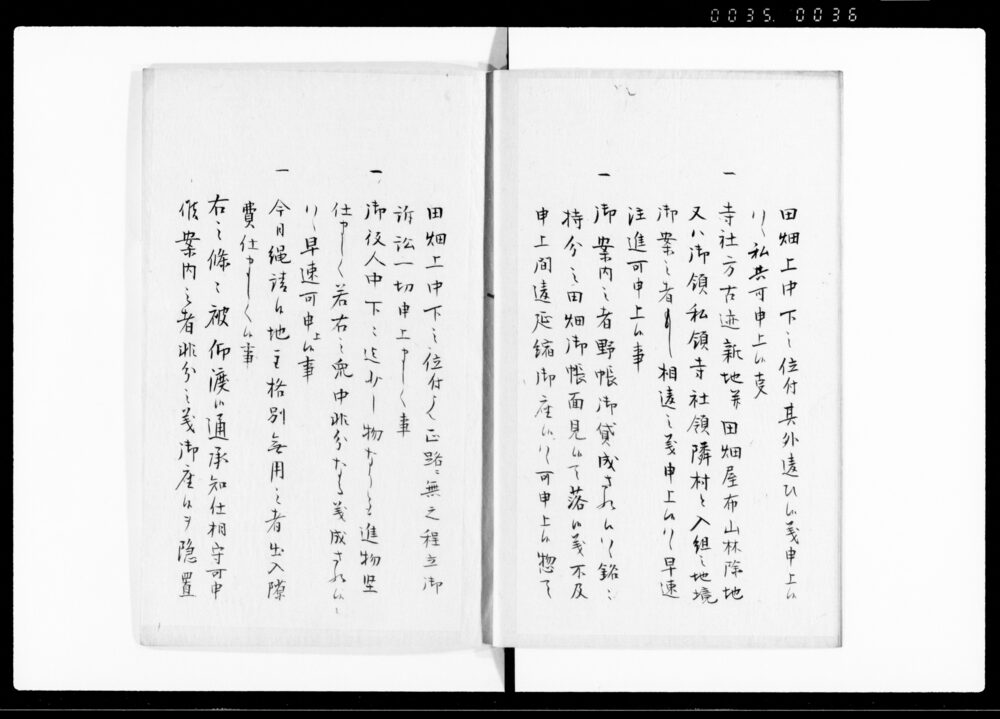 0035. 0036
田畑上中下之位付其外違ひ候義申上候
ハヽ私共可申上候事
一 寺社方古迹新地并田畑屋布山林除地
又ハ御領私領寺社領隣村と入組之地境
御案之者より相違之義申上候ハヽ早速
注進可申上候事
一 御案内之者野帳御貸成され候ハヽ銘々
持分之田畑御帳面見候て落候義不及
申上間違延縮御座候ハヽ可申上候惣て
田畑上中下之位付よく正路ニ無之程立御
訴訟一切申上ましく事
一 御役人中下々迄少し物なりとも進物堅
仕ましく若右之衆中非分なる義成され候ハヽ
早速可申上候事
一 今日縄請候地主格別無用之者出入隙
費仕ましく候事
右之條々被仰渡候通承知仕相守可申
候案内之者非分之義御座候ヲ隠置